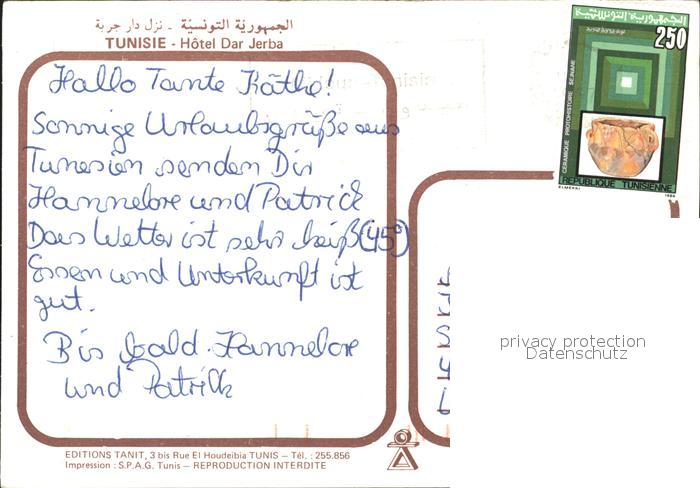 الجمهوريّة التونسيّة - نزل دار جربة
TUNISIE - Hôtel Dar Jerba
Hallo Tante Käthe!
Sonnige Urlaubsgrüße aus
Tunesien senden Dir
Hannelore und Patrick
Das Wetter ist sehr heiß (45°)
Essen und Unterkunft ist
gut.
Bis bald. Hannelore
und Patrick
EDITIONS TANIT, 3 bis Rue El Houdeibia TUNIS - Tél. : 255.856
Impression : S.P.A.G. Tunis - REPRODUCTION INTERDITE
الجمهورية التونسية
250
CERAMIQUE PROTOHISTOIRE SEJNANE
REPUBLIQUE TUNISIENNE
ELMEKKI
privacy protection
Datenschutz